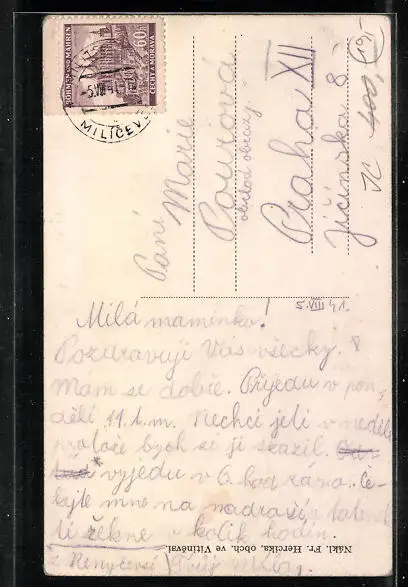 BÖHMEN UND MÄHREN
ČECHY A MORAVA
60
MILÍČEVES
Paní
Marie
Pourová
obchod obrazy
Praha XII
Jičínská 8
5. VIII 41.
Milá maminko!
Pozdravuji Vás všecky.
Mám se dobře. Přijedu v pon-
dělí 11.t.m. Nechci jeti v neděli
protože bych si ji zkazil.
vyjedu v 6. hod ráno. Če-
kejte mne na nádraží a tatínek
ti řekne v kolik hodin.
Nákl. Fr. Hercika, obch. ve Vitiněvsi.